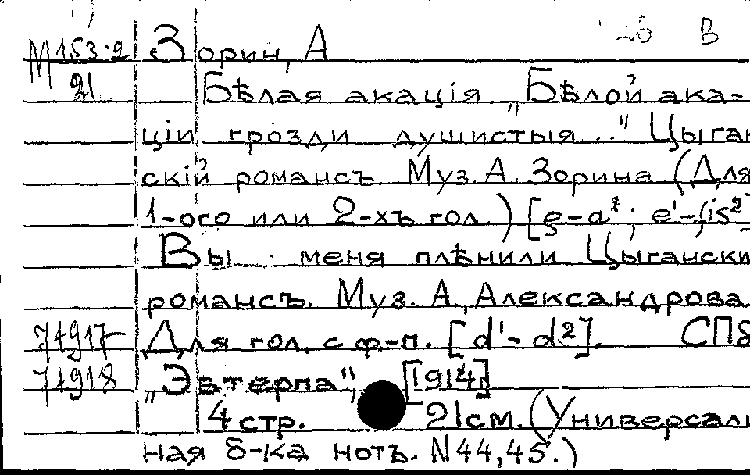 В
М 153.2 Зорин, А
21 Бѣлая акація „Бѣлой ака-
ціи грозди душистыя..." Цыган
скій романсъ Муз. А. Зорина (Для
1-ого или 2-хъ гол.)
Вы меня плѣнили Цыгански
романсъ. Муз. А. Александрова
71917 Для гол. с ф-п. [d'- d²]. СПб
71918 „Эвтерпа", [1914]
4 стр. 21 см. (Универсаль
ная б-ка нотъ. N 44,45.)